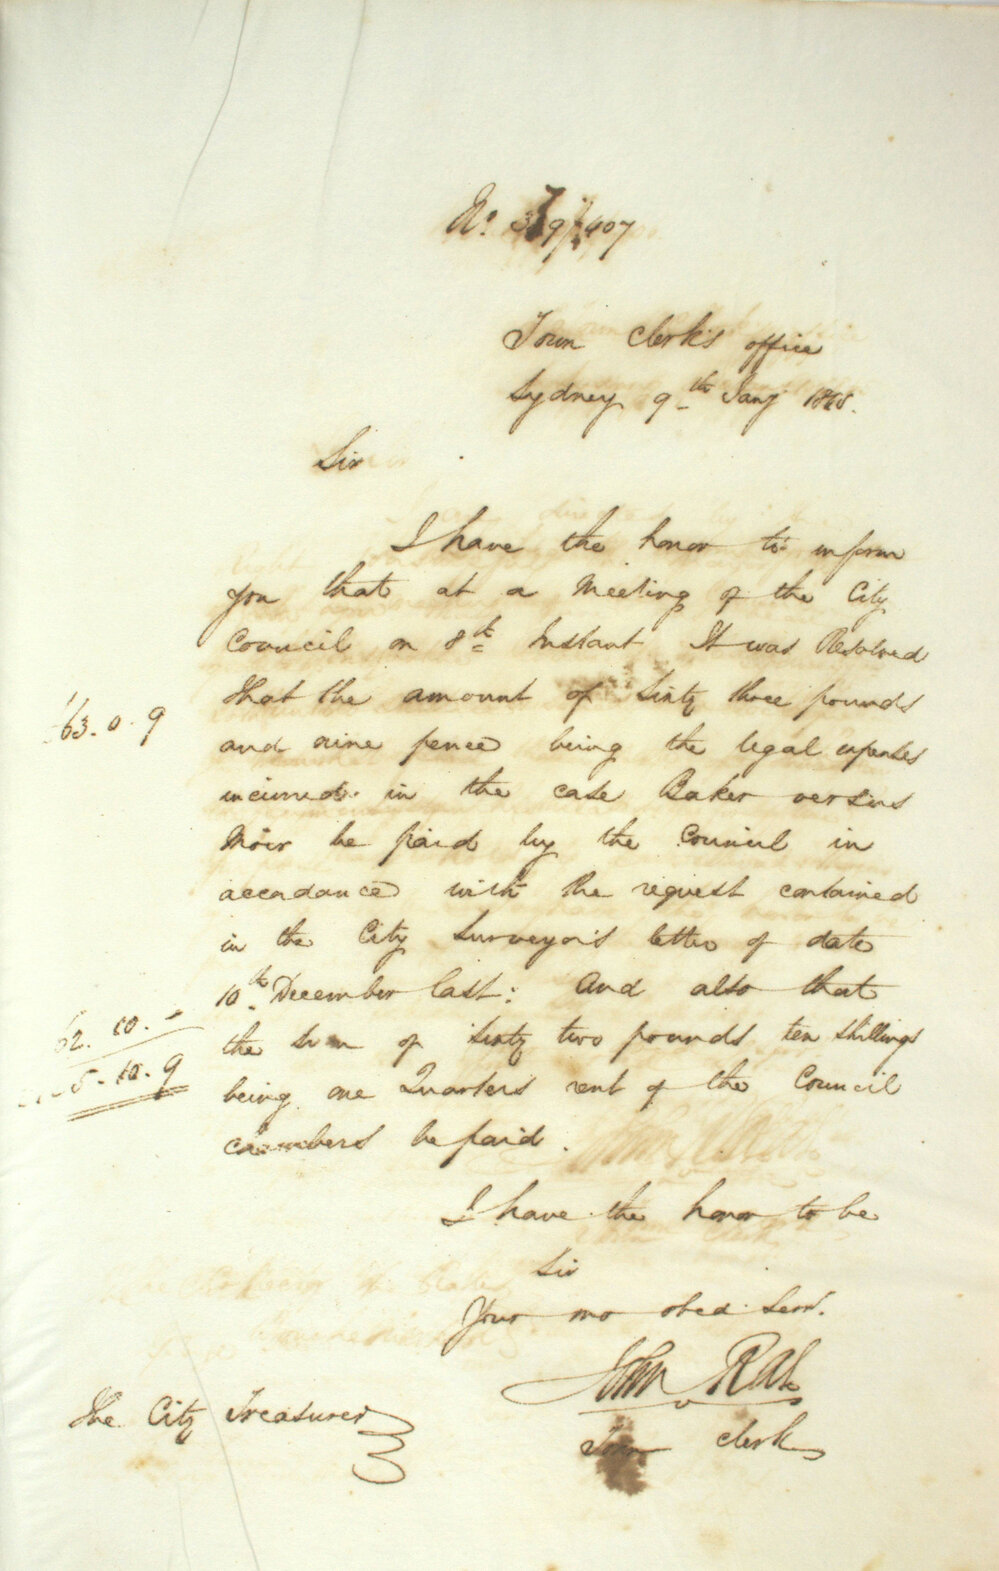 No
Town Clerk's office
Sydney 9th Jany
Sir
I have the honor to inform
you that at a Meeting of the City
Council on 8th Instant It was Resolved
that the amount of Sixty three pounds
63. 0. 9
and nine pence being the legal expenses
incurred in the case Baker versus
Moir be paid by the Council in
accordance with the request contained
in the City Surveyor's letter of date
10th December last: And also that
62. 10. -
the sum of Sixty two pounds ten shillings
5. 10. 9
being one Quarters rent of the Council
Chambers be paid.
I have the honor to be
Sir
Your mo obed. Servt.
John Rae
Town Clerk
The City Treasurer